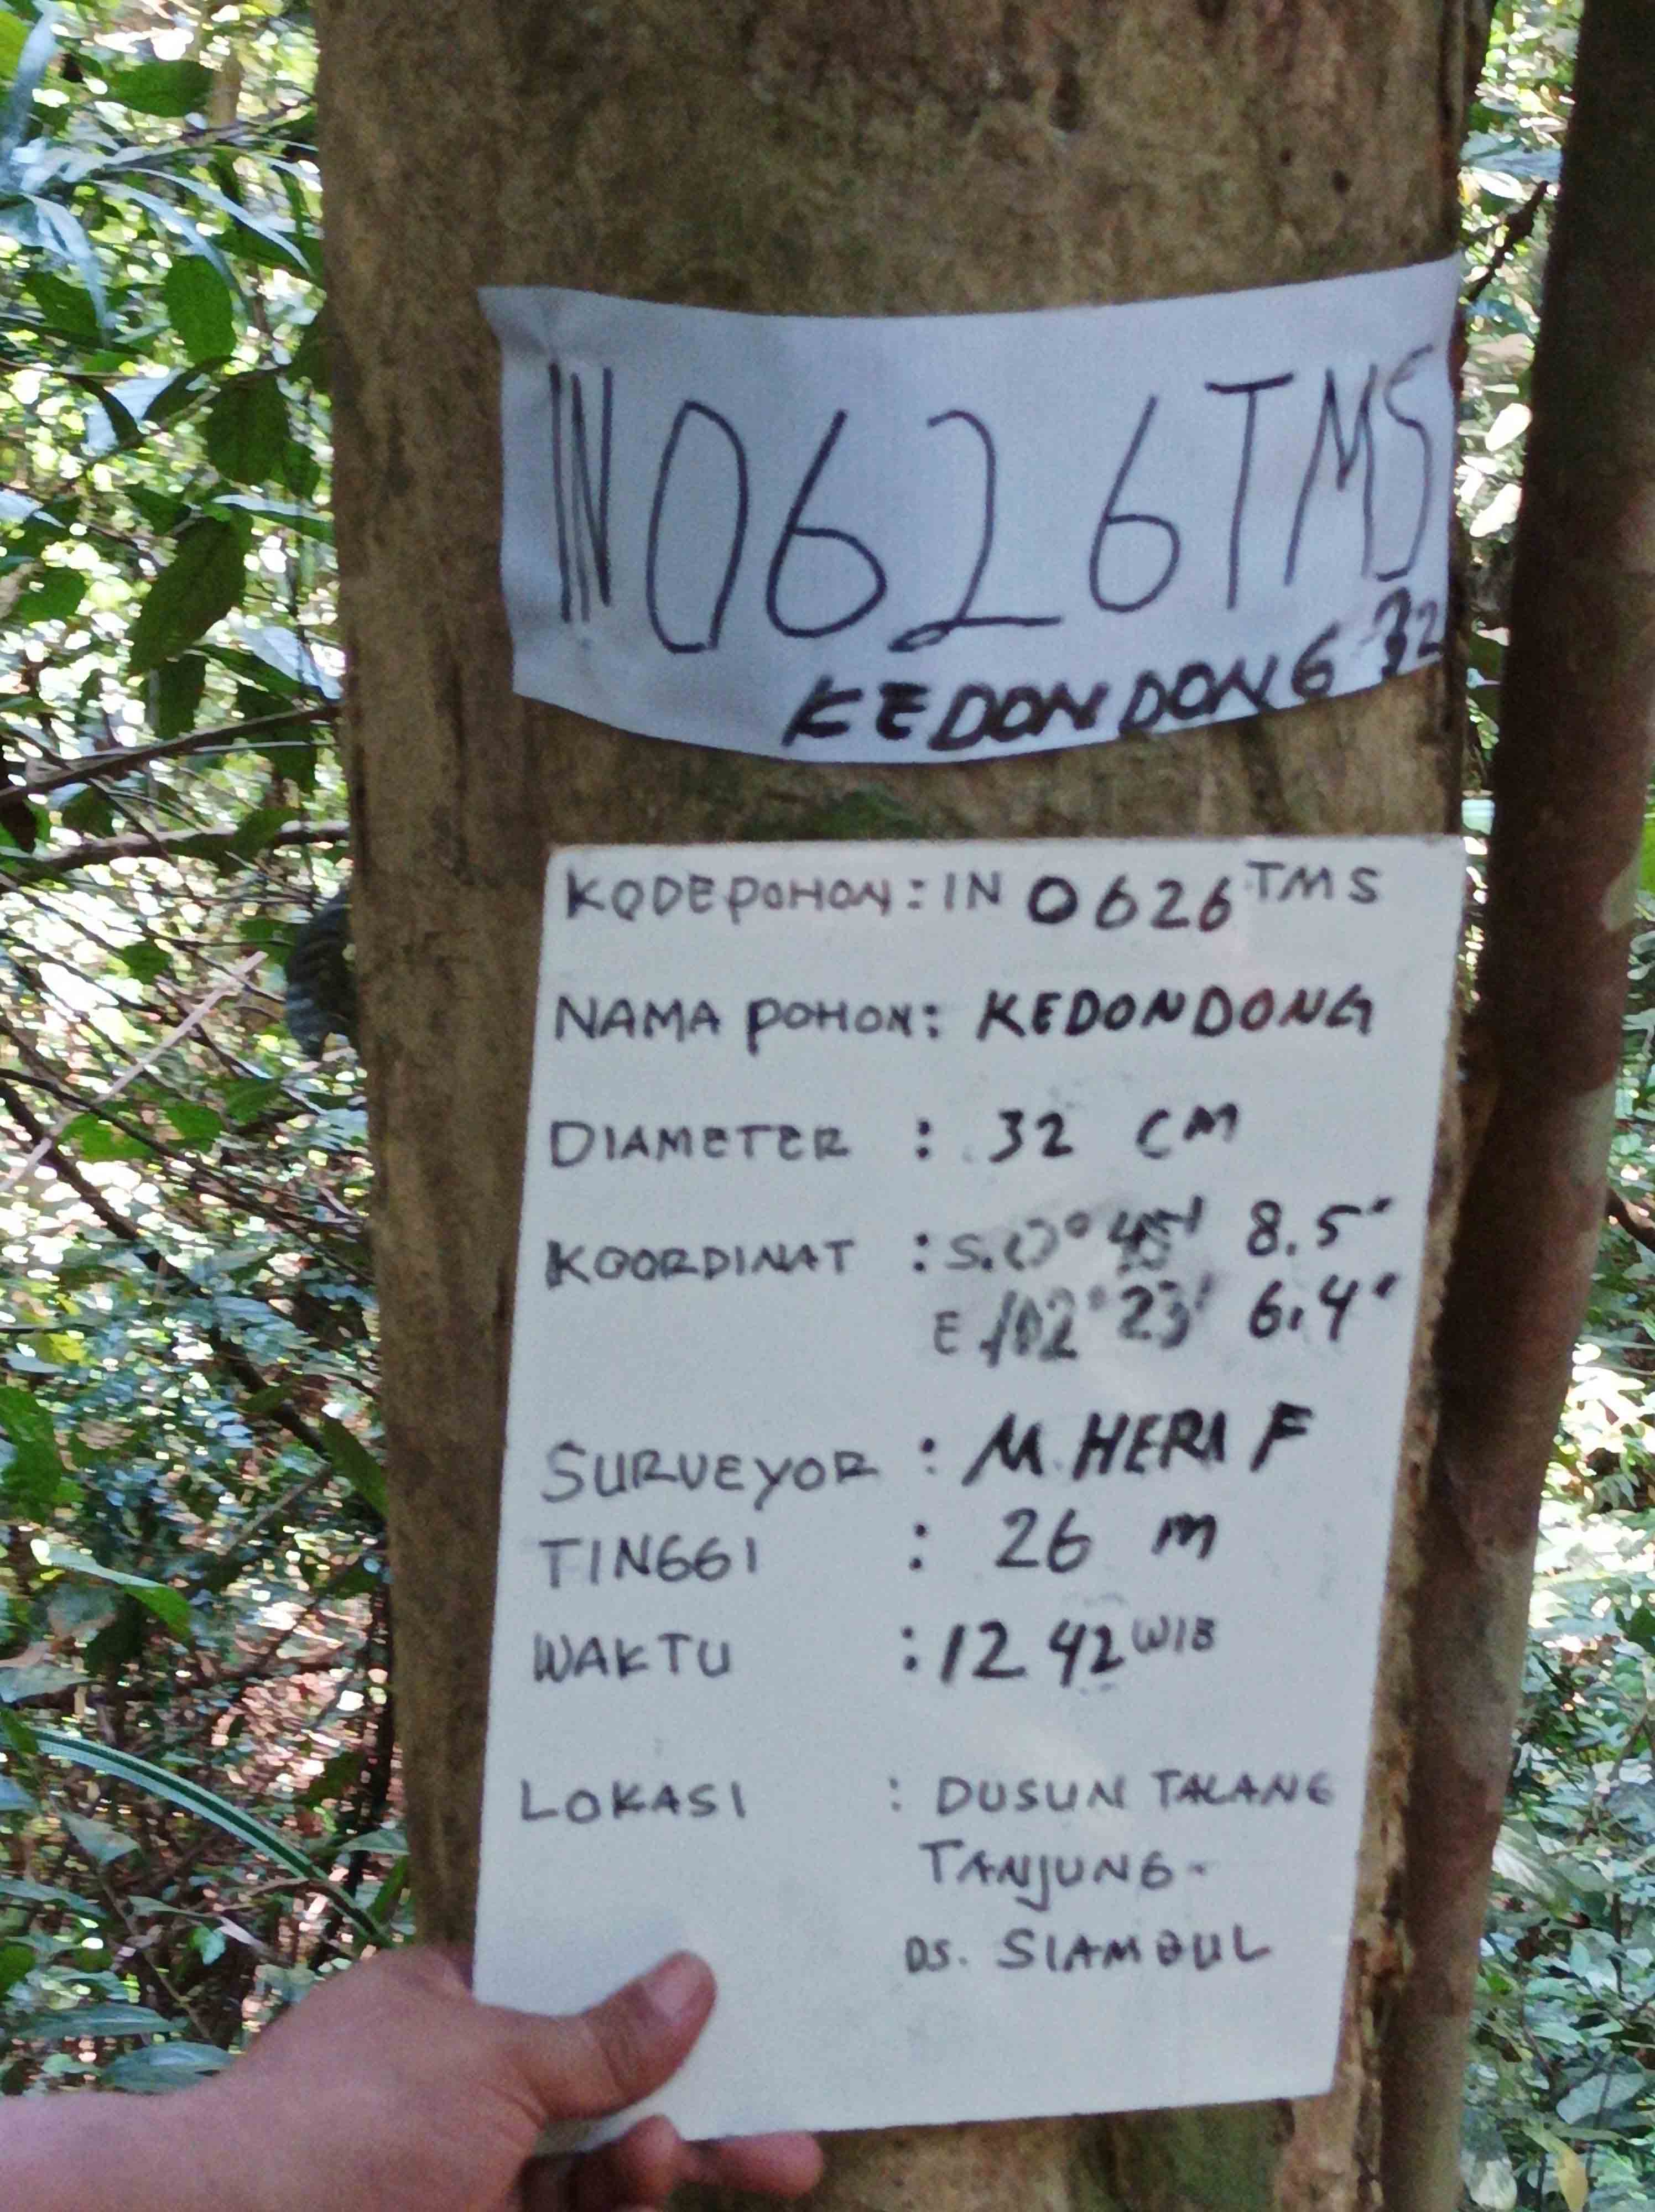 IN 0626 TMS
KEDONDONG 32
KODE POHON : IN 0626 TMS
NAMA POHON : KEDONDONG
DIAMETER : 32 CM
KOORDINAT : S. 0° 45' 8.5"
E 102° 23' 6.4"
SURVEYOR : M. HERI F
TINGGI : 26 m
WAKTU : 12 42 WIB
LOKASI : DUSUN TALANG
TANJUNG -
DS. SIAMBUL